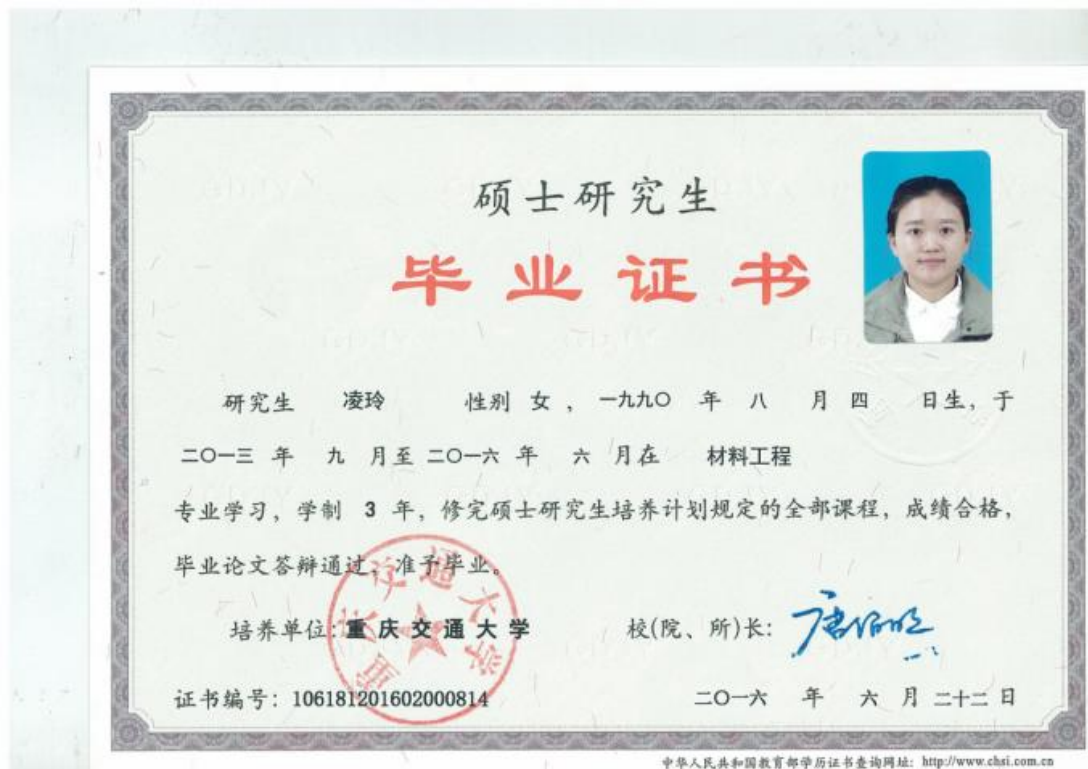 硕士研究生
毕业证书
研究生 凌玲 性别 女 , 一九九〇 年 八 月 四 日生, 于
二〇一三 年 九 月至 二〇一六 年 六 月在 材料工程
专业学习, 学制 3 年, 修完硕士研究生培养计划规定的全部课程, 成绩合格,
毕业论文答辩通过, 准予毕业。
重庆交通大学
培养单位: 重庆交通大学 校(院、所)长: 唐伯明
证书编号: 106181201602000814 二〇一六 年 六 月 二十二 日
中华人民共和国教育部学历证书查询网址: http://www.chsi.com.cn